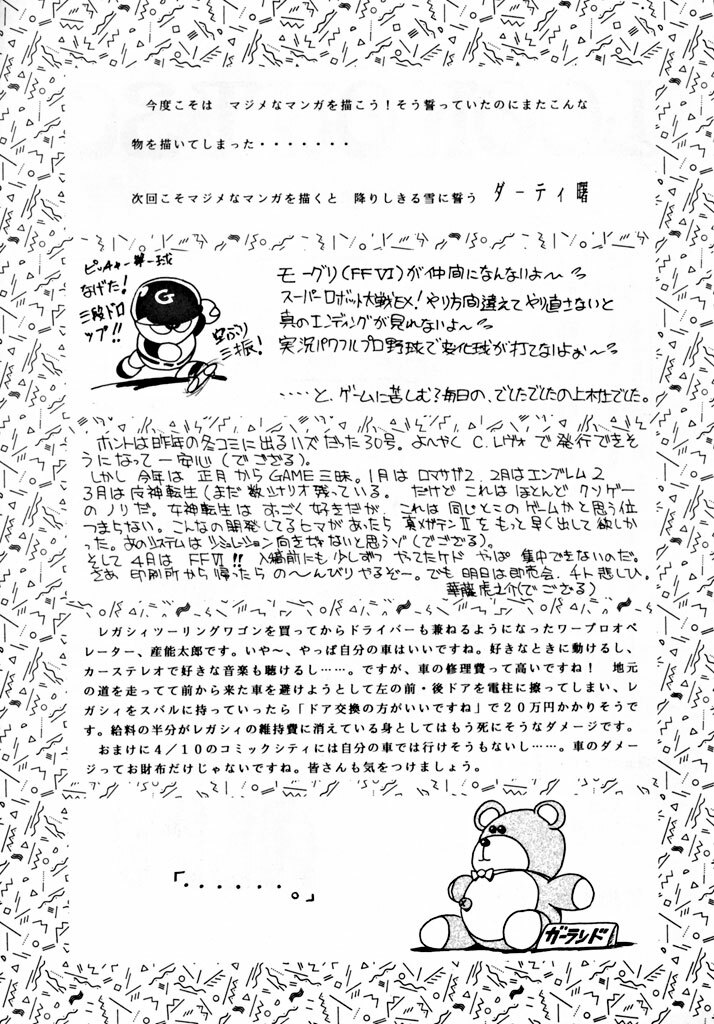 今度こそは　マジメなマンガを描こう！そう誓っていたのにまたこんな
物を描いてしまった・・・・・・・
次回こそマジメなマンガを描くと　降りしきる雪に誓う　ダーティ曙
ピッチャー第一球
なげた！
三段ドロ
ップ!!
G
空ぶり
三振！
モーグリ（FFⅥ）が仲間になんないよ～
スーパーロボット大戦EX！やり方間違えてやり直さないと
真のエンディングが見れないよ～
実況パワフルプロ野球で変化球が打てないよぉ～
‥‥と、ゲームに苦しむ毎日の、でしたでしたの上木性でした。
ホントは昨年の冬コミに出るハズだった30号。よーやく C.レヴォ で発行できそ
うになって一安心（でござる）。
しかし 今年は 正月からGAME三昧。1月は ロマサガ2、2月はエンブレム2
3月は女神転生（まだ数シナリオ残っている。 だけど これは ほとんど クソゲー
のノリだ。女神転生は すっごく好きだが、これは同じとこのゲームかと思う位
つまらない。こんなの開発してるヒマがあったら 真メガテンⅡを もっと早く出して欲しか
った。あのシステムは シミュレーション向きぢゃないと思うゾ（でござる）。
そして 4月は FFⅥ!! 入稿前にも少しずつ やってたケド やっぱ 集中できないのだ。
さあ 印刷所から帰ったら の〜んびりやるぞー。でも 明日は即売会、チト 悲しひ。
華龍虎之介（でござる）
レガシィツーリングワゴンを買ってからドライバーも兼ねるようになったワープロオペ
レーター、産能太郎です。いや～、やっぱ自分の車はいいですね。好きなときに動けるし、
カーステレオで好きな音楽も聴けるし……。ですが、車の修理費って高いですね！　地元
の道を走ってて前から来た車を避けようとして左の前・後ドアを電柱に擦ってしまい、レ
ガシィをスバルに持っていったら「ドア交換の方がいいですね」で２０万円かかりそうで
す。給料の半分がレガシィの維持費に消えている身としてはもう死にそうなダメージです。
おまけに４／１０のコミックシティには自分の車では行けそうもないし……。車のダメー
ジってお財布だけじゃないですね。皆さんも気をつけましょう。
「・・・・・・。」
ガーランド